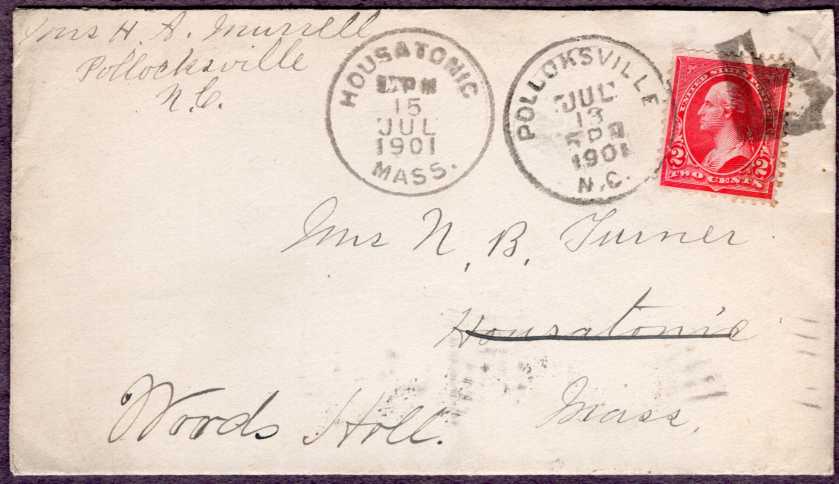 Mrs H. A. Murrell
Pollocksville
N.C.
HOUSATONIC
PM
15
JUL
1901
MASS.
POLLOKSVILLE
JUL
13
PM
1901
N.C.
UNITED STATES POSTAGE
2 2
TWO CENTS
Mrs N. B. Turner
Housatonic
Mass.
Woods Holl.